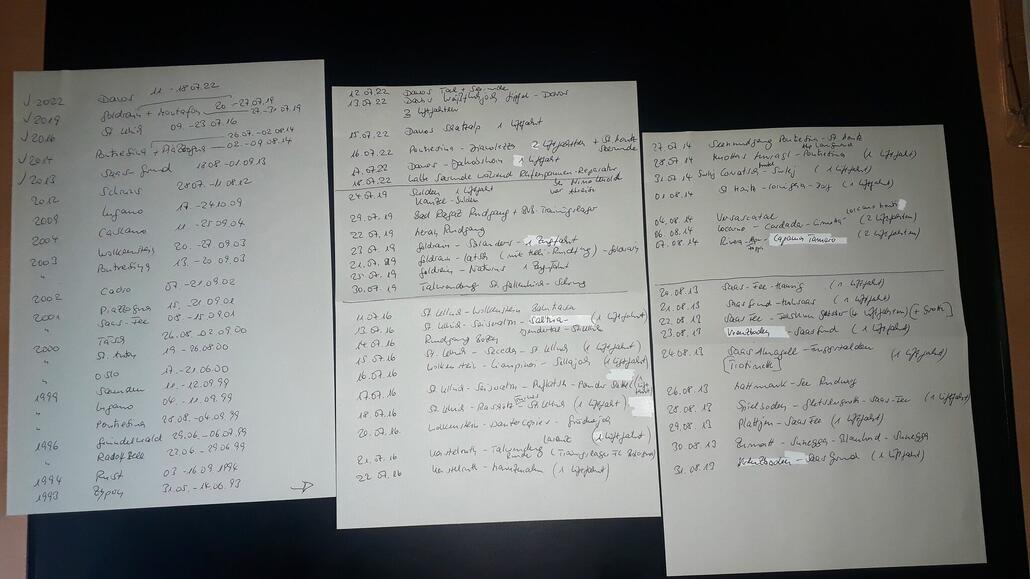 ✓ 2022 Davos 11 - 18.07.22
✓ 2019 Goldrain + Montafon 20. - 27.07.19 27. - 31.07.19
✓ 2016 St. Ulrich 09. - 23.07.16
✓ 2014 Pontresina + Piazzogna 26.07. - 02.08.14 02. - 09.08.14
✓ 2013 Saas-Grund 18.08 - 01.09.13
2012 Schruns 28.07. - 11.08.12
2009 Lugano 17. - 24.10.09
2004 Caslano 11. - 25.09.04
2003 Wolkenstein 20. - 27.09.03
" Pontresina 13. - 20.09.03
2002 Cadro 07. - 21.09.02
2001 Piazzogna 15. - 21.09.01
" Saas-Fee 08. - 15.09.01
2000 Täsch 26.08. - 02.09.00
" St. Anton 19. - 26.08.00
" Oslo 17. - 21.06.00
1999 11. - 12.09.99
" Lugano 04. - 11.09.99
" Pontresina 28.08. - 04.09.99
1996 Grindelwald 29.06. - 06.07.99
" Radolfzell 23.06. - 29.06.99
1994 Rust 03. - 16.09.1994
1993 Zypern 31.05. - 14.06.93
12.07.22 Davos + Seerunde
13.07.22 Davos Weissfluhjoch Gipfel - Davos
3 Liftfahrten
15.07.22 Davos 1 Liftfahrt
16.07.22 Pontresina - Diavolezza 2 Liftfahrten + St. Moritz Seerunde
17.07.22 Davos - Jakobshorn 1 Liftfahrt
18.07.22 während Reifenpannen-Reparatur
24.07.19 Sulden 1 Liftfahrt
Kanzel - Sulden
29.07.19 Bad Ragaz Rundgang + BVB-Trainingslager
22.07.19 Meran Rundgang
23.07.19 Goldrain - Schlanders - 1 Zugfahrt
21.07.19 Goldrain - Latsch - Goldrain
25.07.19 Goldrain - Naturns 1 Zugfahrt
30.07.19 Talwanderung St. Gallenkirch - Schruns
11.07.16 St. Ulrich - Wolkenstein
13.07.16 St. Ulrich - Seiseralm - Saltria - (1 Liftfahrt)
14.07.16 Rundgang Bozen
15.07.16 St. Ulrich - Seceda - St. Ulrich (1 Liftfahrt)
16.07.16 Wolkenstein - Ciampinoi - Sellajoch (1 Liftfahrt)
17.07.16 St. Ulrich - Seiseralm - Puflatsch -
18.07.16 St. Ulrich - Raschötz - St. Ulrich (1 Liftfahrt)
20.07.16 Wolkenstein - Dantercepies - Grödnerjoch
(1 Liftfahrt)
21.07.16 - Talwanderung
22.07.16 (1 Liftfahrt)
27.07.14 Seerundgang Pontresina - St. Moritz
28.07.14 Muottas Muragl - Pontresina (1 Liftfahrt)
31.07.14 Surlej Corvatsch - Surlej (1 Liftfahrt)
01.08.14 St. Moritz - (1 Liftfahrt)
04.08.14 Verzascatal
06.08.14 Locarno - Cardada - Cimetta - (2 Liftfahrten)
07.08.14 Rivera - Capanna Tamaro (2 Liftfahrten)
20.08.13 Saas-Fee - Hannig (1 Liftfahrt)
21.08.13 Saas Grund - Hohsaas (1 Liftfahrt)
22.08.13 Saas Fee -
23.08.13 Kreuzboden - Saas Grund (1 Liftfahrt)
24.08.13 Saas Almagell - Furggstalden (1 Liftfahrt)
[Trottinett]
26.08.13 Mattmark - See Rundweg
28.08.13 Spielboden - Gletschergrotte - Saas-Fee (1 Liftfahrt)
29.08.13 Plattjen - Saas Fee (1 Liftfahrt)
30.08.13 Zermatt - Sunnegga - Blauherd - Sunnegga
31.08.13 Kreuzboden - Saas Grund (1 Liftfahrt)